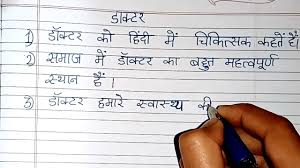 डॉक्टर
1) डॉक्टर को हिंदी में चिकित्सक कहते हैं।
2) समाज में डॉक्टर का बहुत महत्वपूर्ण
स्थान हैं।
3) डॉक्टर हमारे स्वास्थ्य की